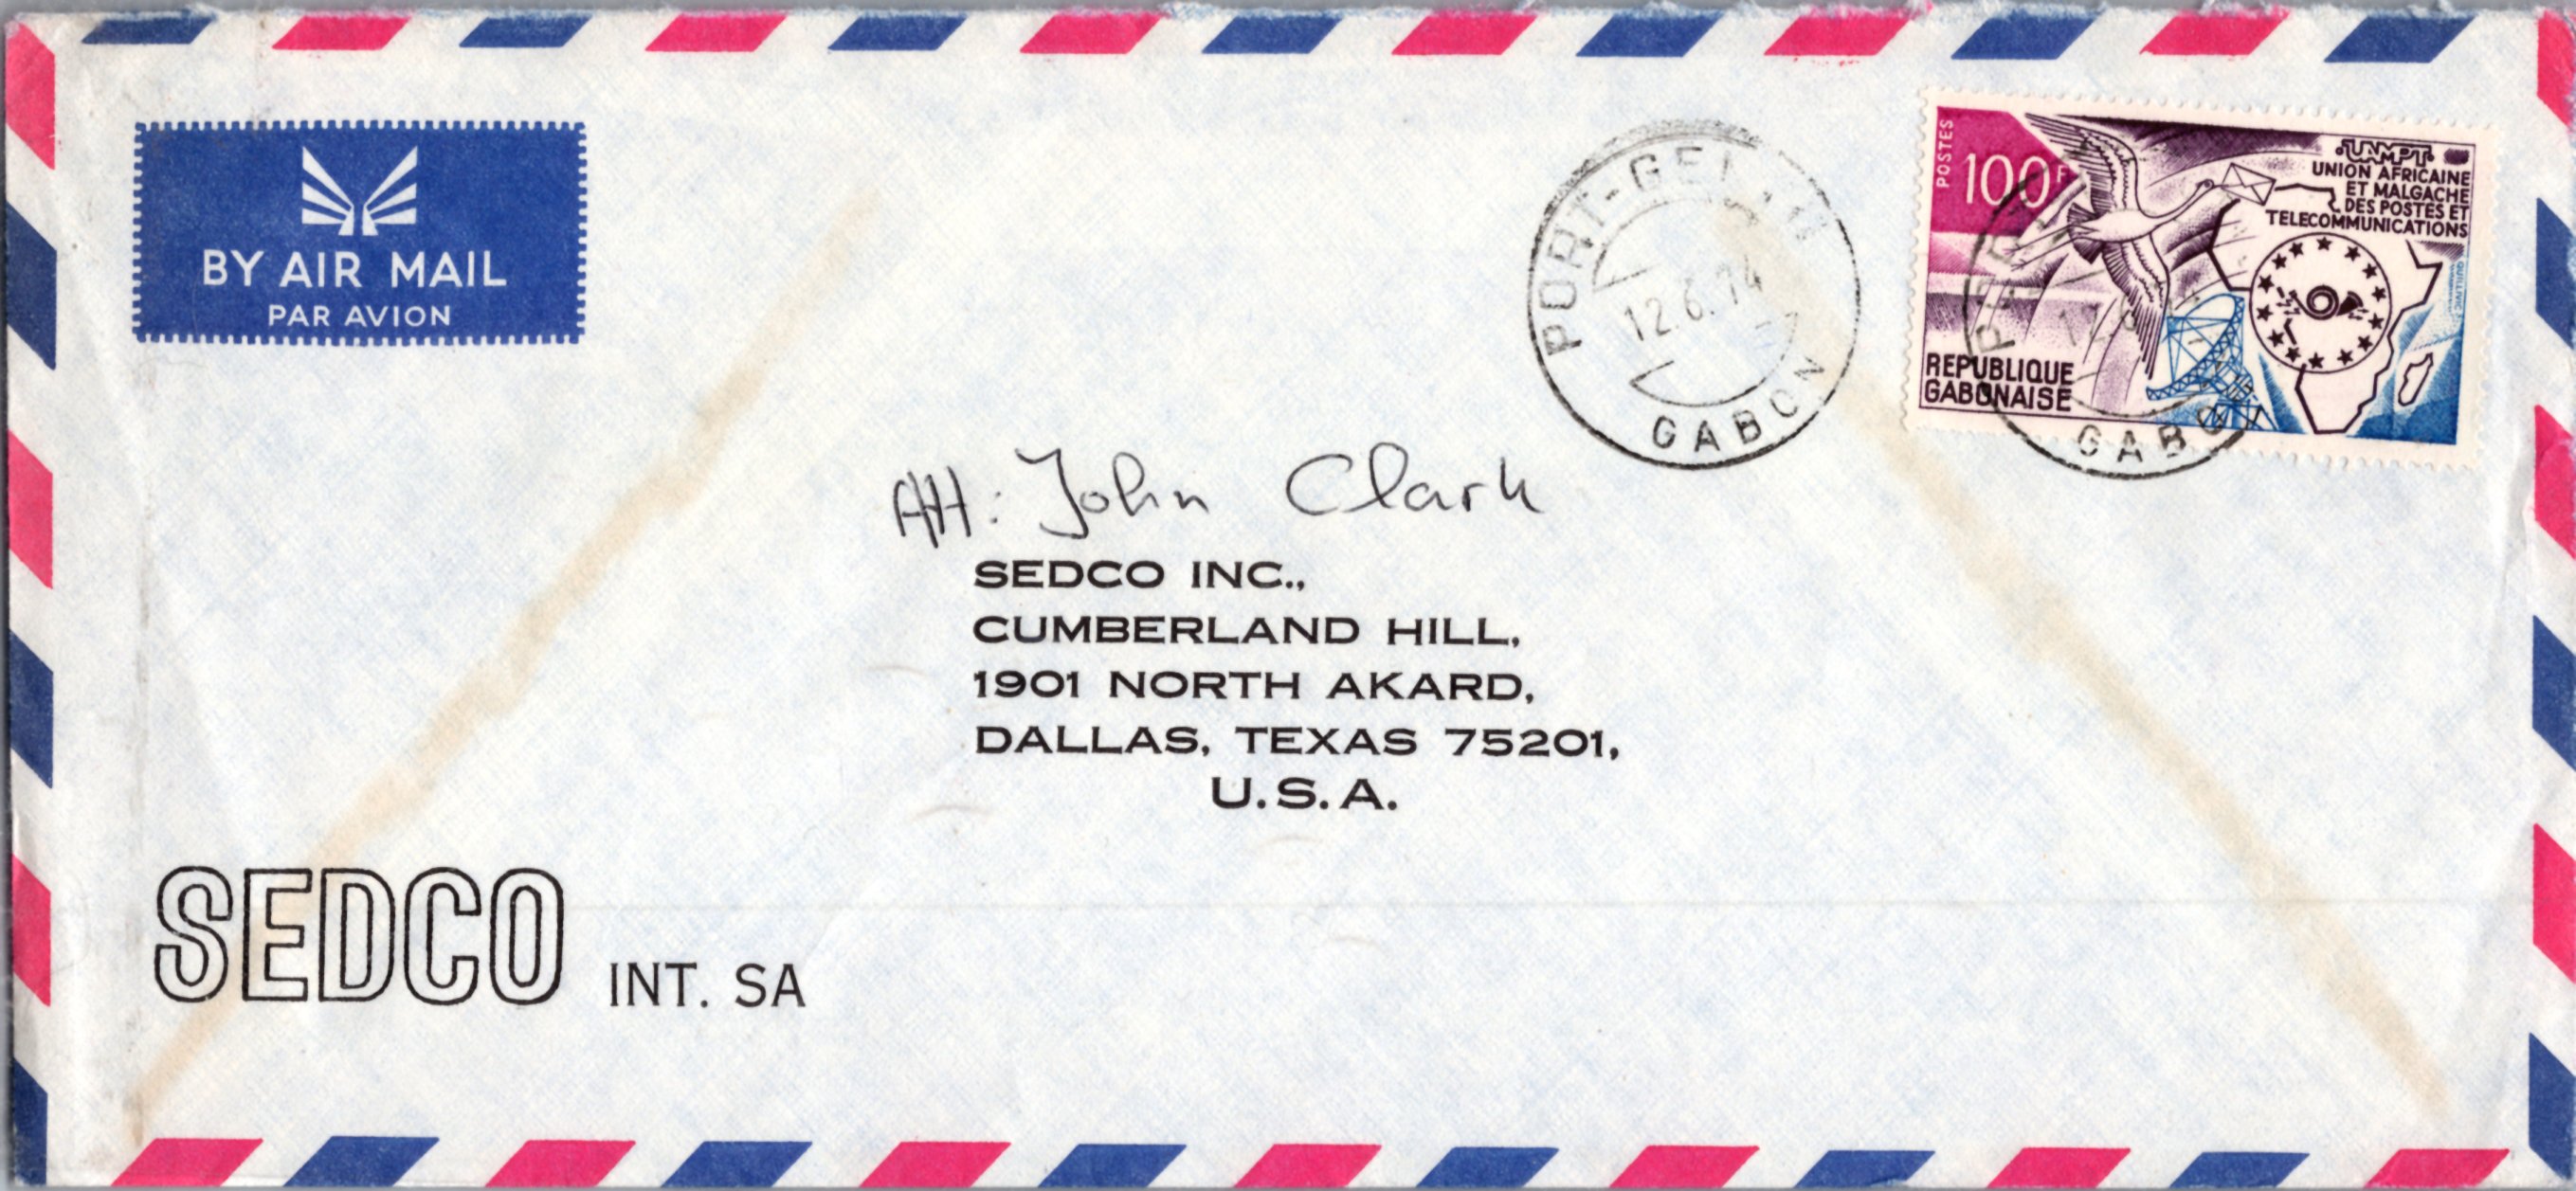 BY AIR MAIL
PAR AVION
PORT-GENTIL
12.6.74
GABON
POSTES
100F
UAMPT
UNION AFRICAINE
ET MALGACHE
DES POSTES ET
TELECOMMUNICATIONS
REPUBLIQUE
GABONAISE
GABON
Att: John Clark
SEDCO INC.,
CUMBERLAND HILL,
1901 NORTH AKARD,
DALLAS, TEXAS 75201,
U.S.A.
SEDCO INT. SA